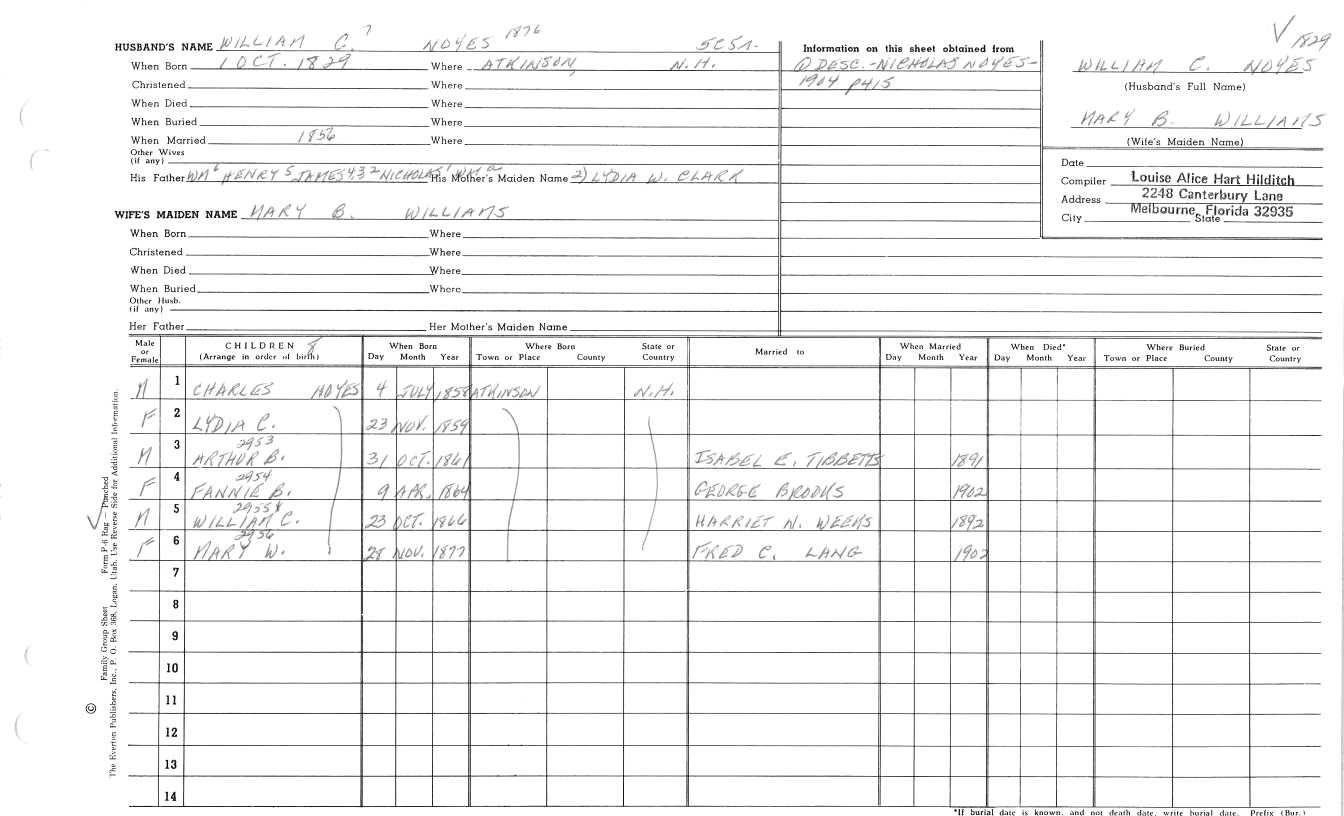 √ 1829
HUSBAND'S NAME WILLIAM C. 7 NOYES 1876 5C5A-
When Born 1 OCT. 1829 Where ATKINSON, N.H.
Christened Where
When Died Where
When Buried Where
When Married 1856 Where
Other Wives
(if any)
His Father WM 6 HENRY 5 JAMES 4,3 2 NICHOLAS 1 WM a His Mother's Maiden Name 2) LYDIA W. CLARK
Information on this sheet obtained from
① DESC.-NICHOLAS NOYES-
1904 P415
WILLIAM C. NOYES
(Husband's Full Name)
MARY B. WILLIAMS
(Wife's Maiden Name)
Date
Compiler Louise Alice Hart Hilditch
Address 2248 Canterbury Lane
City Melbourne, Florida 32935 State
WIFE'S MAIDEN NAME MARY B. WILLIAMS
When Born Where
Christened Where
When Died Where
When Buried Where
Other Husb.
(if any)
Her Father Her Mother's Maiden Name
Male or Female CHILDREN 8 (Arrange in order of birth) When Born Day Month Year Where Born Town or Place County State or Country Married to When Married Day Month Year When Died* Day Month Year Where Buried Town or Place County State or Country
M 1 CHARLES NOYES 4 JULY 1858 ATKINSON N.H.
F 2 LYDIA C. 23 NOV. 1859
2953
M 3 ARTHUR B. 31 OCT. 1861 ISABEL E. TIBBETTS 1891
2954
F 4 FANNIE B. 9 APR. 1864 GEORGE BROOKS 1902
2955
√ M 5 WILLIAM C. 23 OCT. 1866 HARRIET N. WEEKS 1892
2956
F 6 MARY W. 28 NOV. 1877 FRED C. LANG 1902
7
8
9
10
11
12
13
14
*If burial date is known, and not death date, write burial date. Prefix (Bur.)
Family Group Sheet Form P-8 Rag — Punched
© The Everton Publishers, Inc., P. O. Box 368, Logan, Utah. Use Reverse Side for Additional Information.